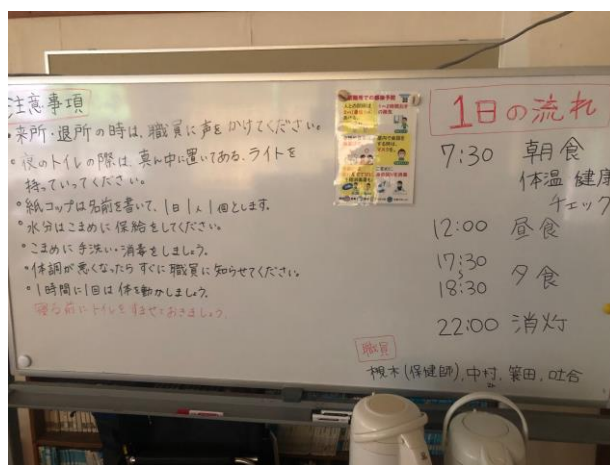 注意事項
・来所・退所の時は、職員に声をかけてください。
・夜のトイレの際は、真ん中に置いてある、ライトを
持っていってください。
・紙コップは名前を書いて、1日1人1個とします。
・水分はこまめに保給をしてください。
・こまめに手洗い・消毒をしましょう。
・体調が悪くなったらすぐに職員に知らせてください。
・1時間に1回は体を動かしましょう。
寝る前にトイレをすませておきましょう。
1日の流れ
7:30 朝食
体温 健康
チェック
12:00 昼食
17:30
〜
18:30 夕食
22:00 消灯
職員
(保健師),中村,簗田,吐合